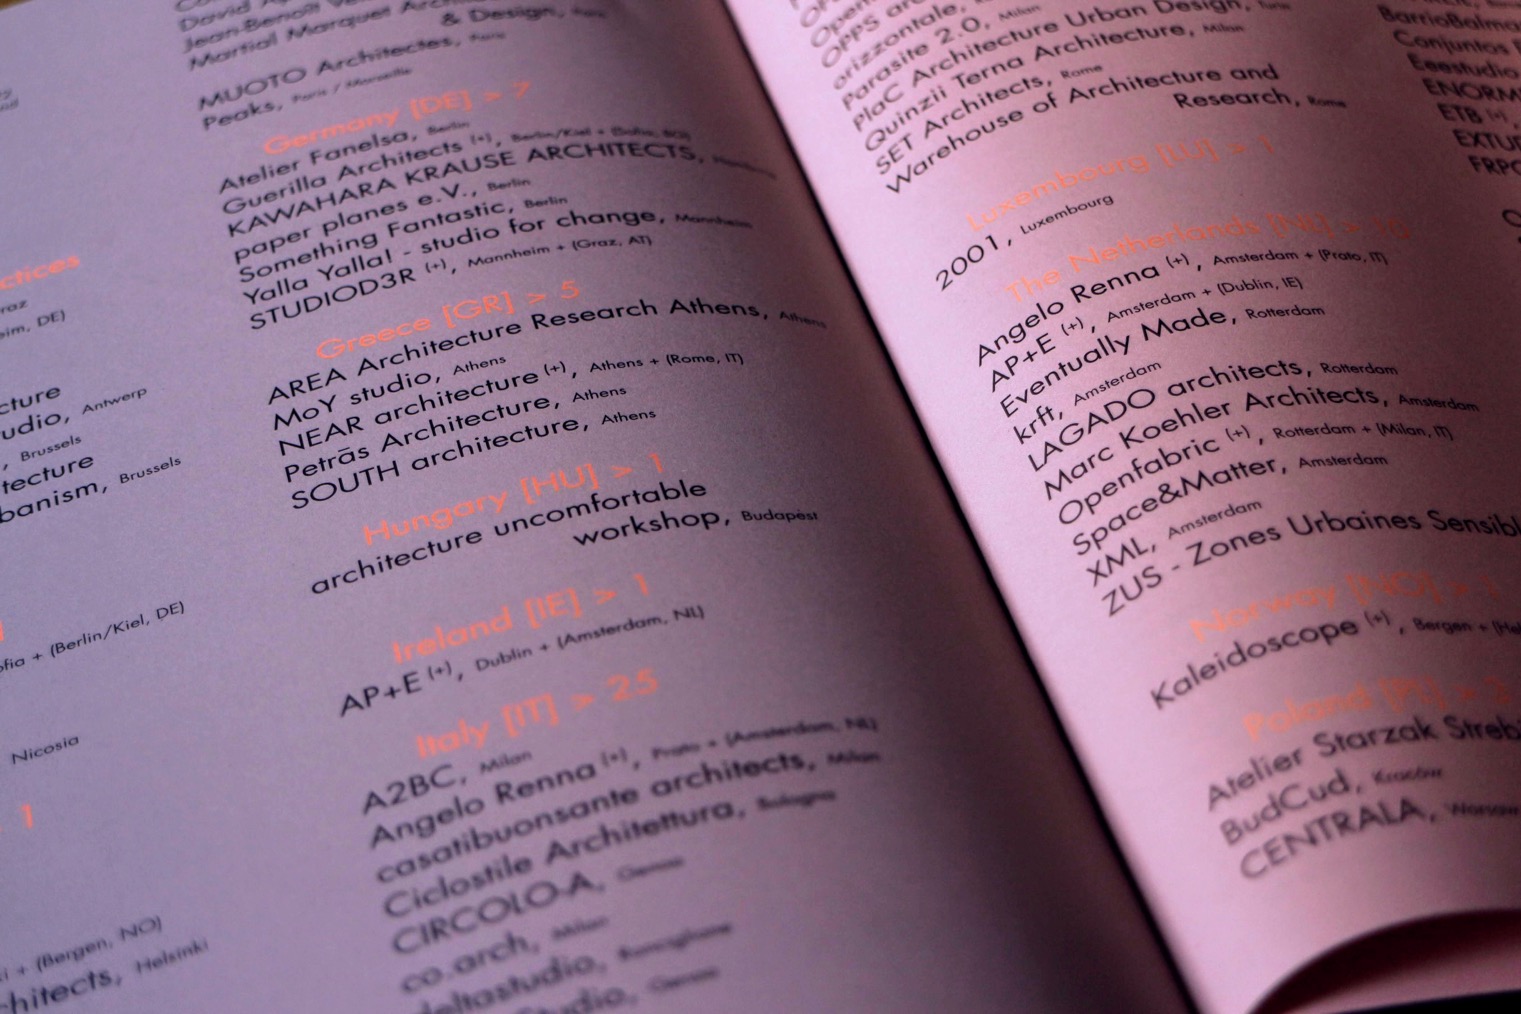 ctices
raz
eim, DE)
cture
udio, Antwerp
, Brussels
tecture
banism, Brussels
ofia + (Berlin/Kiel, DE)
Nicosia
1
i + (Bergen, NO)
hitects, Helsinki
& Design,
MUOTO Architectes, Paris
Peaks, Paris / Marseille
Germany [DE] > 7
Atelier Fanelsa, Berlin
Guerilla Architects (+), Berlin/Kiel + (Sofia, BG)
KAWAHARA KRAUSE ARCHITECTS,
paper planes e.V., Berlin
Something Fantastic, Berlin
Yalla Yalla! - studio for change, Mannheim
STUDIOD3R (+), Mannheim + (Graz, AT)
Greece [GR] > 5
AREA Architecture Research Athens, Athens
MoY studio, Athens
NEAR architecture (+), Athens + (Rome, IT)
Petrãs Architecture, Athens
SOUTH architecture, Athens
Hungary [HU] > 1
architecture uncomfortable
workshop, Budapest
Ireland [IE] > 1
AP+E (+), Dublin + (Amsterdam, NL)
Italy [IT] > 25
A2BC, Milan
Angelo Renna (+), Prato + (Amsterdam, NL)
casatibuonsante architects, Milan
Ciclostile Architettura, Bologna
CIRCOLO-A, Genoa
co.arch, Milan
deltastudio, Ronciglione
Studio, Genoa
OPPS
orizzontale,
Parasite 2.0, Milan
PlaC Architecture Urban Design,
Quinzii Terna Architecture, Milan
SET Architects, Rome
Warehouse of Architecture and
Research, Rome
Luxembourg [LU] > 1
2001, Luxembourg
The Netherlands [NL] > 10
Angelo Renna (+), Amsterdam + (Prato, IT)
AP+E (+), Amsterdam + (Dublin, IE)
Eventually Made, Rotterdam
krft, Amsterdam
LAGADO architects, Rotterdam
Marc Koehler Architects, Amsterdam
Openfabric (+), Rotterdam + (Milan, IT)
Space&Matter, Amsterdam
XML, Amsterdam
ZUS - Zones Urbaines Sensibl
Norway [NO] > 1
Kaleidoscope (+), Bergen + (Hel
Poland [PL] > 3
Atelier Starzak Strebi
BudCud, Kraków
CENTRALA, Warsaw
BarrioBalma
Conjuntos
Eeestudio
ENORM
ETB (+),
EXTU
FRPO